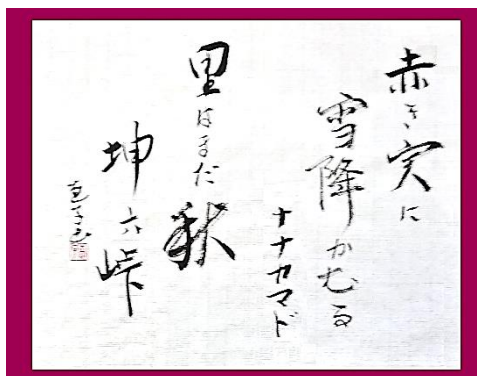 赤き実に
雪降かむる
ナナカマド
里はまだ秋
坤六峠